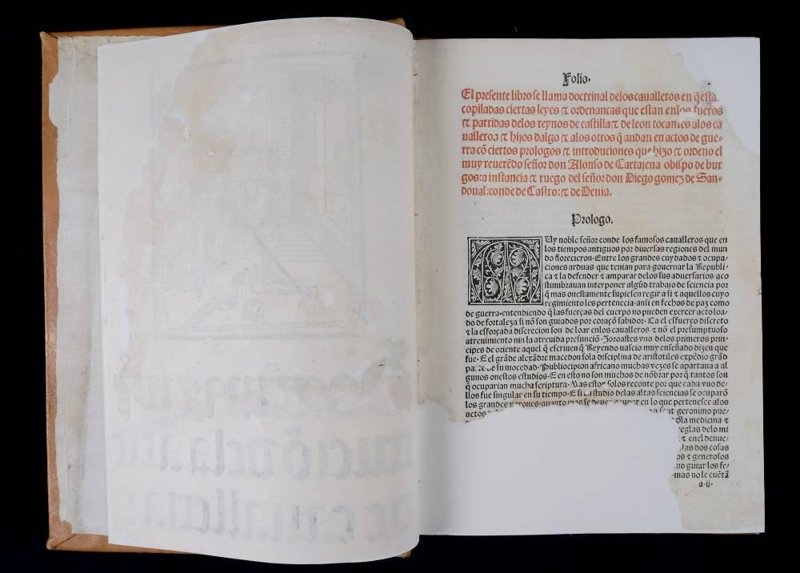 Folio.
El presente libro se llama doctrinal delos cavalleros en q̃ estã
copiladas ciertas leyes ⁊ ordenanças que estan enlos fueros
⁊ partidas delos reynos de castilla ⁊ de leon tocantes alos ca
valleros ⁊ hijos dalgo ⁊ alos otros q̃ andan en actos de gue-
rra cõ ciertos prologos ⁊ introduciones que hizo ⁊ ordeno el
muy reverẽdo señor don Alonso de Cartajena obispo de bur
gos: a instancia ⁊ ruego del señor don Diego gomez de San-
doual: conde de Castro: ⁊ de Denia.
Prologo.
MUy noble señor conde los famosos cavalleros que en
los tiempos antiguos por diversas regiones del mun
do florecieron. Entre los grandes cuydados ⁊ ocupa-
ciones arduas que tenian para governar la Republi
ca ⁊ la defender ⁊ amparar delos sus adversarios. aco
stumbravan interponer algũd trabajo de sciencia por
q̃ mas onestamente supiesen regir a si ⁊ aquellos cuyo
regimiento les pertenecia. ansi en fechos de paz como
de guerra. entendiendo q̃ las fuerças del cuerpo no pueden exercer acto loa-
do de fortaleza si nõ son guiados por coraçõ sabidor. Ca el esfuerço discreto
⁊ la esforçada discrecion son de loar enlos cavalleros ⁊ nõ el presumptuoso
atrevimiento nin la atrevida presunciõ. Zoroastes uno delos primeros prin-
cipes de oriente aquel q̃ escriven q̃ Reyendo nascio muy enseñado dizen que
fue. E el grãde alexãdre macedon sola disciplina de aristotiles expẽdio grãd
pa de su mocedad. Publio cipion africano muchas vezes se apartava a al
gunos onestos estudios. E en esto no son muchos de nõbrar por q̃ tantos son
q̃ ocuparian mucha scriptura. Mas estos solos reconte por que cada uno de-
llos fue singular en su tiempo. E si estudio delas altas sciencias se ocuparõ
los grandes varones. quanto mas se deven ocupar en lo que pertenesce alos
actos
at geronimo pue-
dla medicina ⁊
reglas delo mi
⁊ enel denue-
as dos cosas
⁊ generosos
no guiar los fe-
mas no le cuẽtã
a.ij.